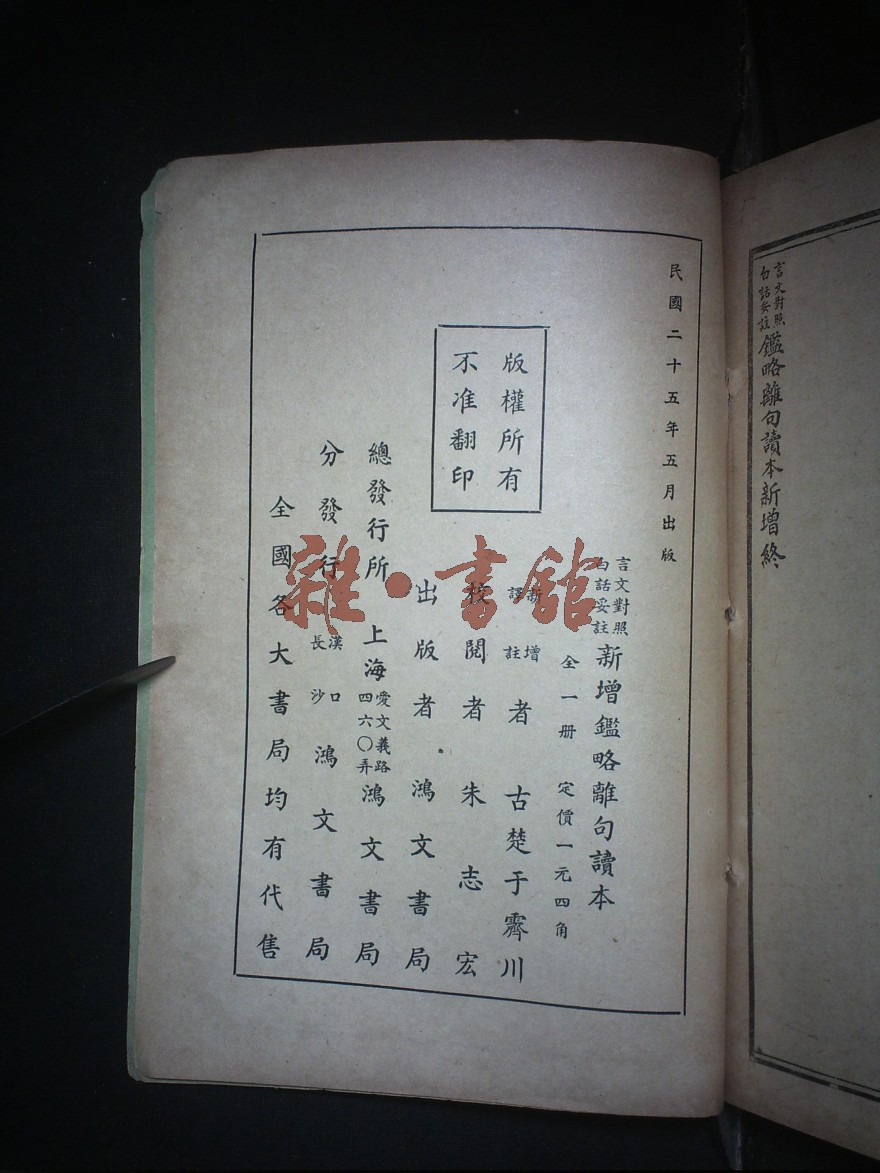 言文對照
白話妥註
鑑略離句讀本新增終
民國二十五年五月出版
言文對照
白話妥註
新增鑑略離句讀本
全一册 定價一元四角
版權所有
不准翻印
新增
譯註
者 古楚于霽川
校閱者 朱志宏
出版者 鴻文書局
總發行所 上海
愛文義路
四六〇弄
鴻文書局
分發行
漢口
長沙
鴻文書局
全國各大書局均有代售
雜·書館